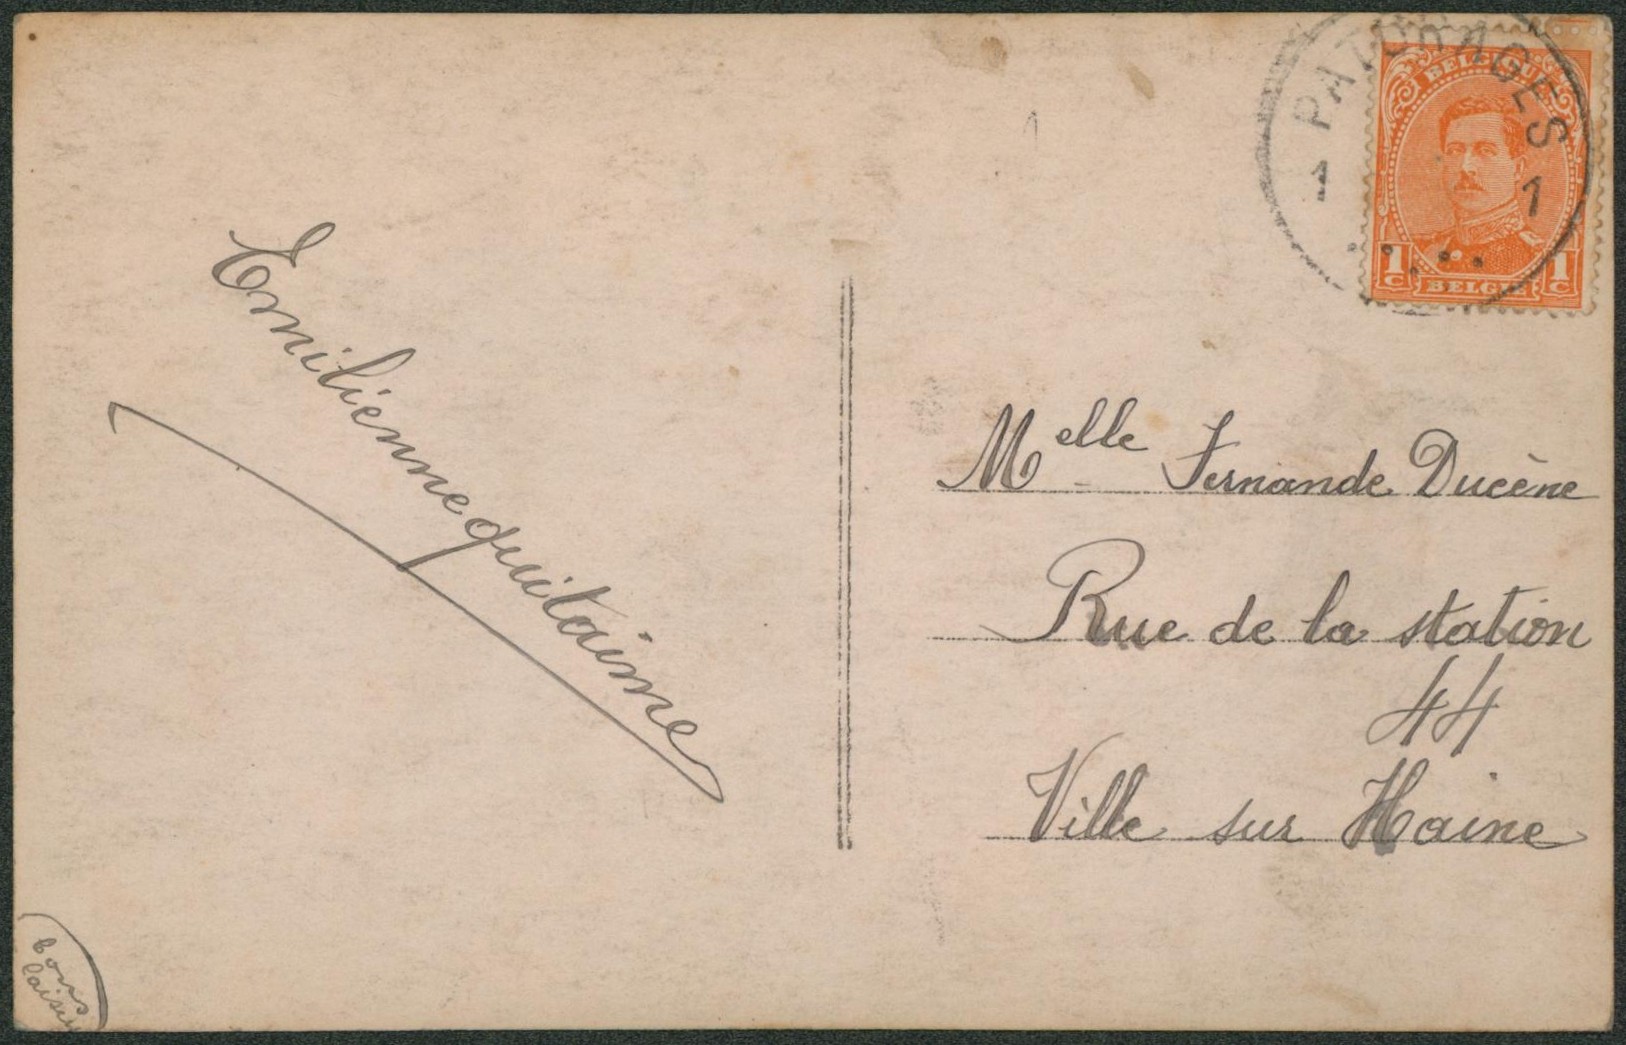 PATURAGES
1 1
BELGIQUE
1 C 1 C
BELGIE
Emilienne quitaine
Melle Fernande Ducène
Rue de la station
44
Ville sur Haine
bons